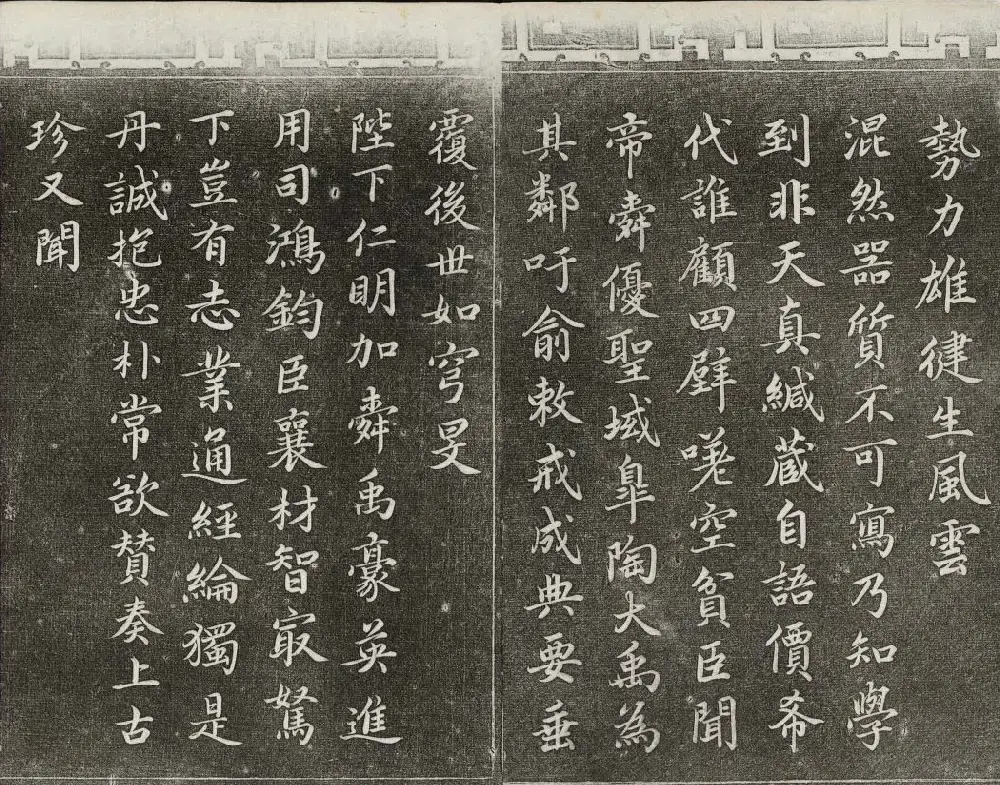 勢力雄健生風雲
混然器質不可寫乃知學
到非天真緘藏自語價希
代誰顧四壁嗟空貧臣聞
帝舜優聖域臯陶大禹為
其鄰吁俞敕戒成典要垂
覆後世如穹旻
陛下仁明加舜禹豪英進
用司鴻鈞臣襄材智冣駑
下豈有志業通經綸獨是
丹誠抱忠朴常欲賛奏上古
珍又聞